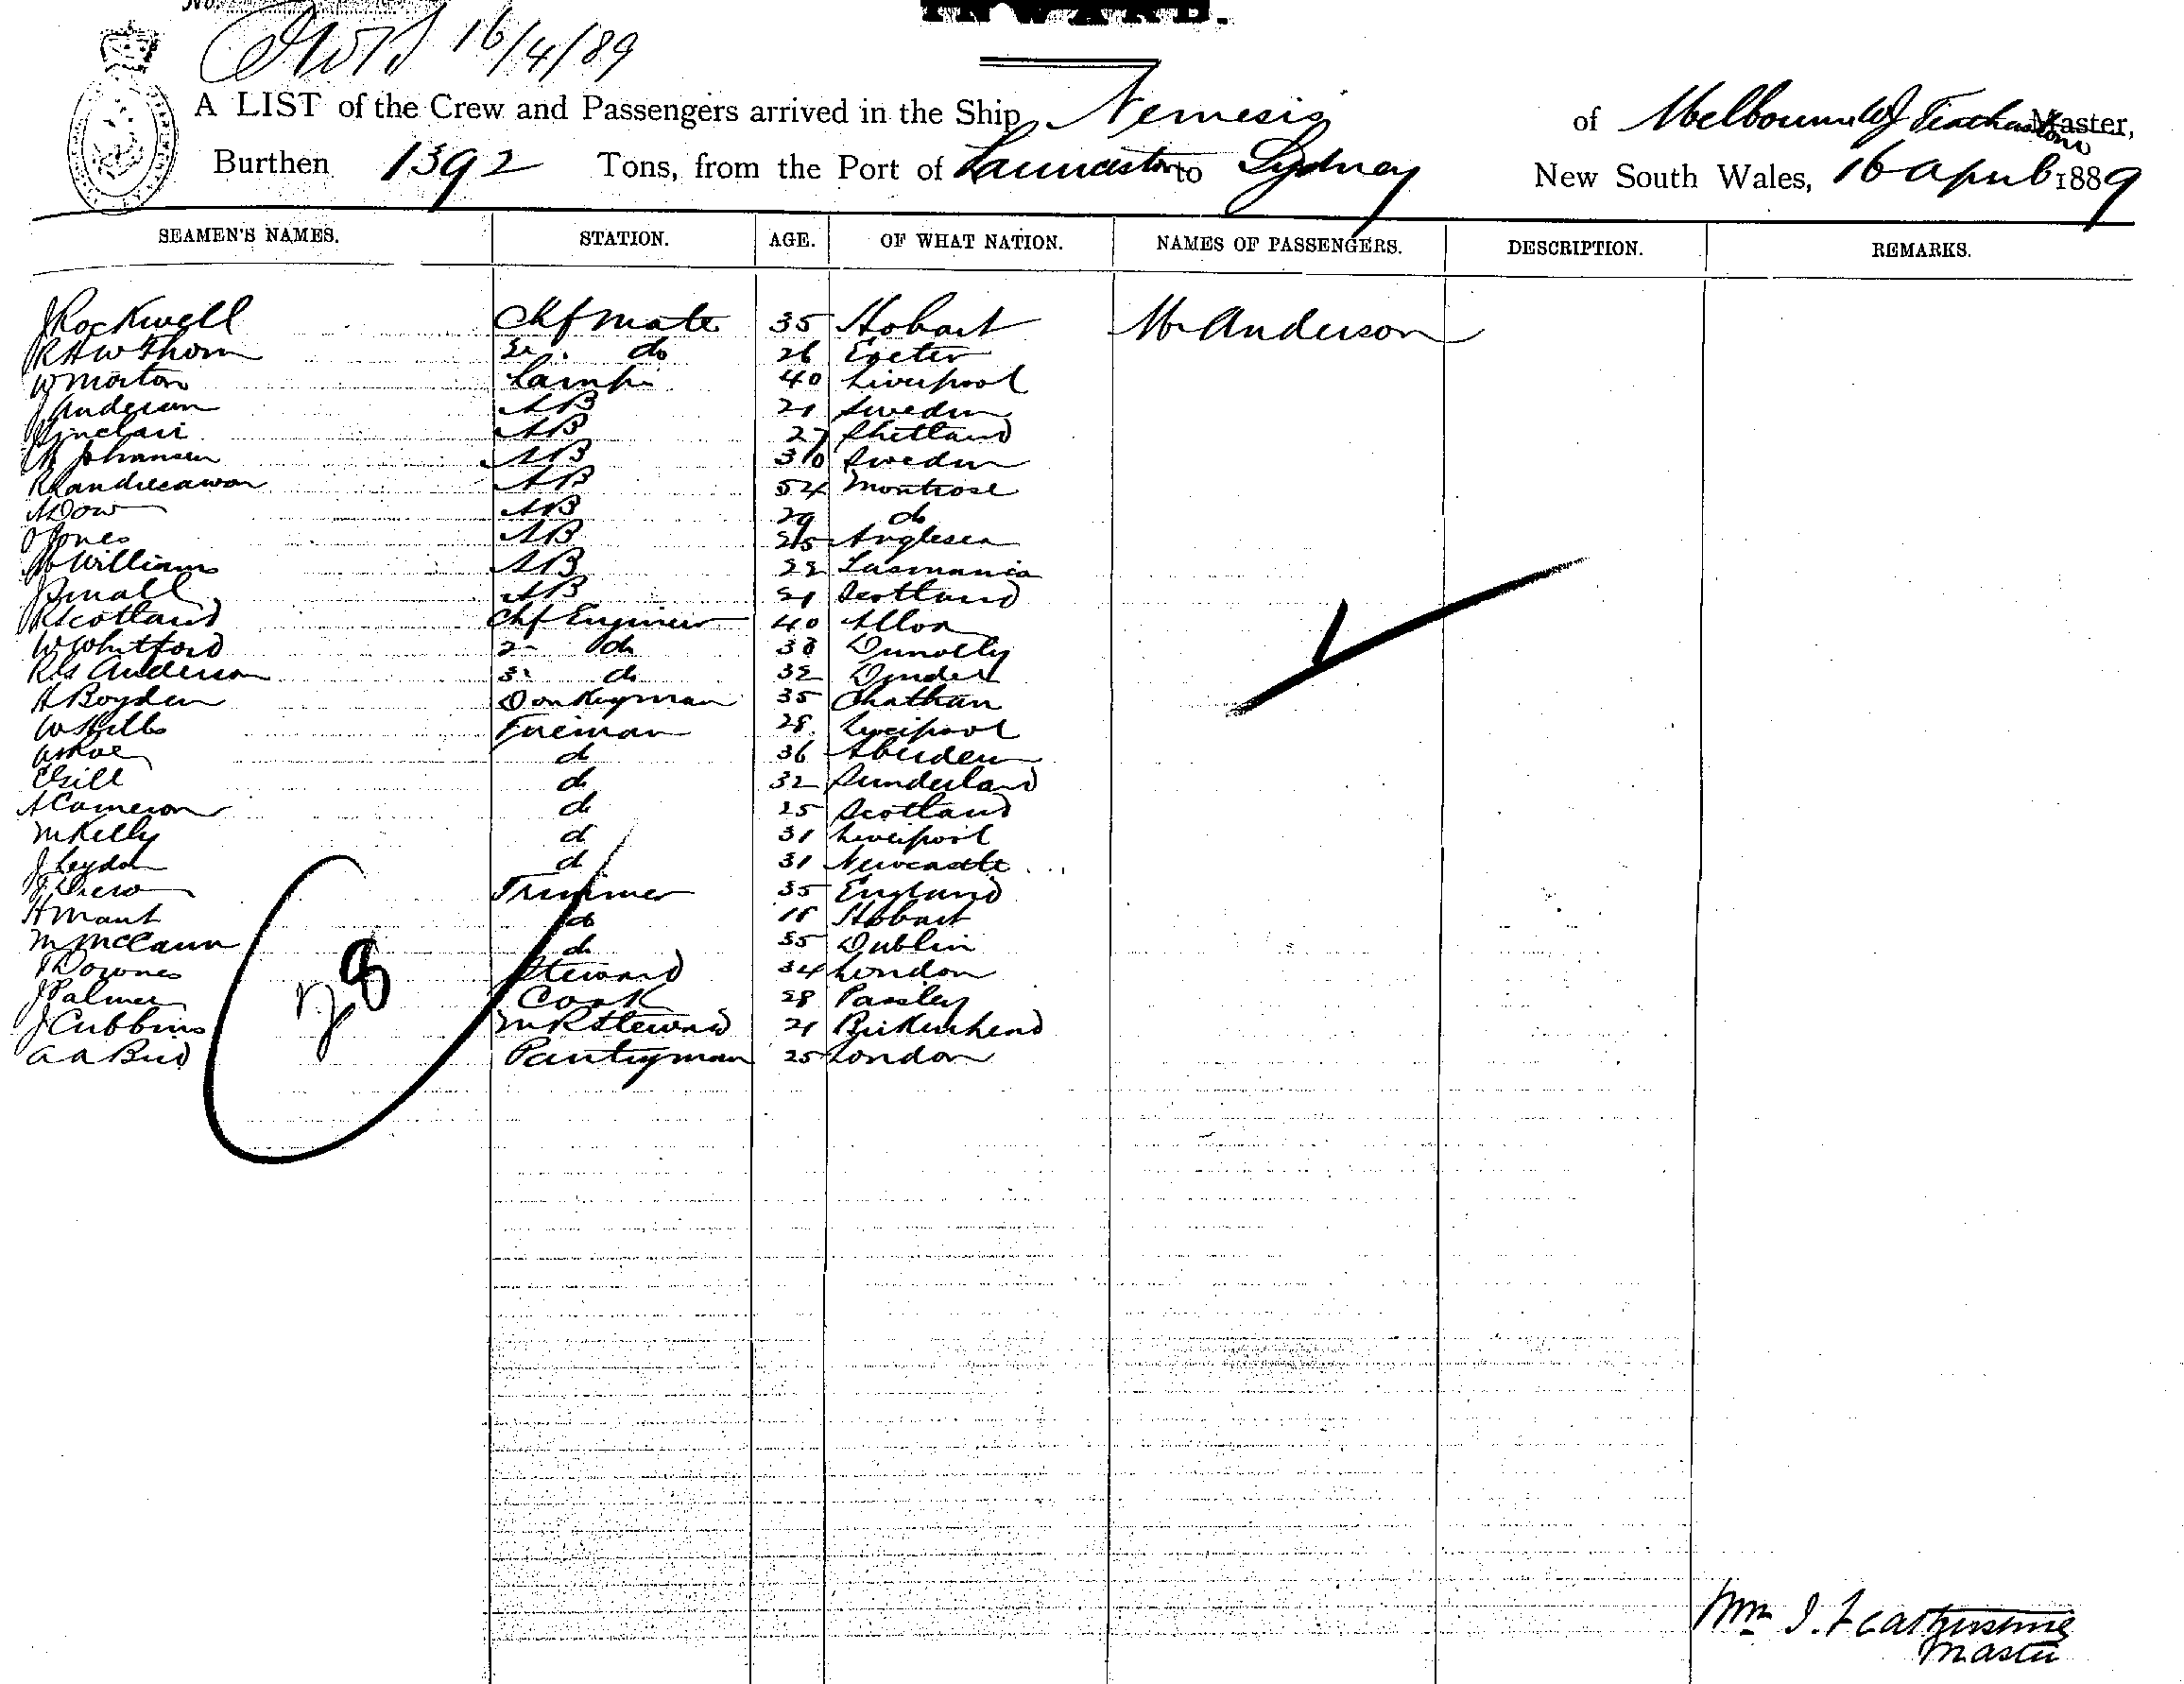 No.
INWARD.
16/4/89
A LIST of the Crew and Passengers arrived in the Ship Nemesis of Melbourne WJ Featherstone Master,
Burthen 1392 Tons, from the Port of Launceston to Sydney New South Wales, 16 April 1889
SEAMEN'S NAMES. STATION. AGE. OF WHAT NATION. NAMES OF PASSENGERS. DESCRIPTION. REMARKS.
J Rockwell Chf Mate 35 Hobart Mr Anderson
R H W Thom do 26 Exeter
W Morton Lamps 40 Liverpool
J Anderson AB 21 Sweden
Sinclair AB 27 Shetland
Johansen AB 30 Sweden
R AB 54 Montrose
A Dow AB 29 do
O Jones AB 25 Anglesea
Williams AB 22 Tasmania
J Small AB 21 Scotland
R Scotland Chf Engineer 40 Alloa
W Whitford 2 do 38 Dunolly
R G Anderson 3 do 32 Dundee
A Boyden Donkeyman 35 Chatham
W Fireman 28 Liverpool
d 36 Aberdeen
Gill d 32 Sunderland
A Cameron d 25 Scotland
M Kelly d 31 Liverpool
J Leydon d 31 Newcastle
Drew Trimmer 35 England
H Mant do 18 Hobart
M McCann d 35 Dublin
T Downes Steward 34 London
J Palmer Cook 28 Paisley
J Cubbins M R Steward 21 Birkenhead
A A Bird Pantryman 25 London
28
Wm J. Featherstone
Master